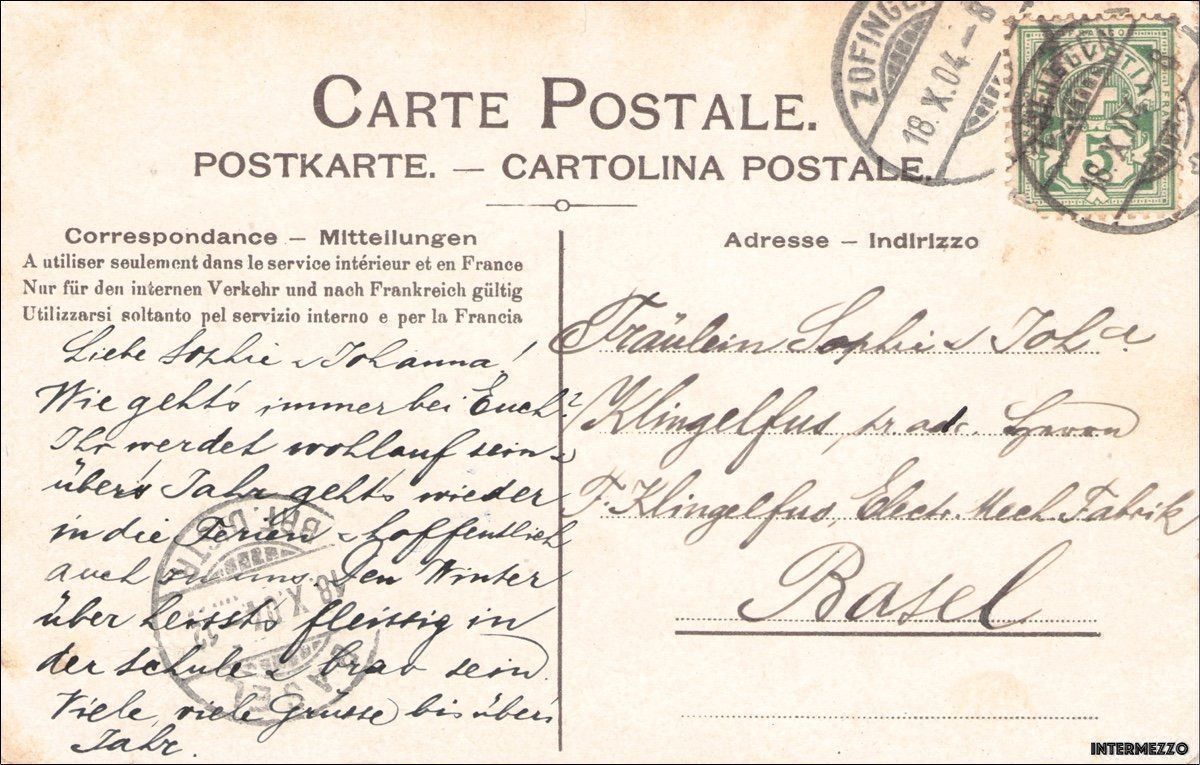 CARTE POSTALE.
POSTKARTE. — CARTOLINA POSTALE.
ZOFINGEN
18.X.04–8
ZOFINGEN
18.X.04
FRANCO
HELVETIA
5
Correspondance — Mitteilungen
A utiliser seulement dans le service intérieur et en France
Nur für den internen Verkehr und nach Frankreich gültig
Utilizzarsi soltanto pel servizio interno e per la Francia
Liebe Sophie u Johanna!
Wie geht's immer bei Euch?
Ihr werdet wohlauf sein u
über's Jahr geht's wieder
in die Ferien u hoffentlich
auch zu uns. Den Winter
über heissts fleissig in
der Schule u brav sein.
Viele, viele Grüsse bis übers
Jahr.
BASEL
BRF. DISTR.
18.X.04
Adresse — Indirizzo
Fräulein Sophie u Joh.a
Klingelfus, pr adr. Herrn
F. Klingelfus, Electr. Mech. Fabrik
Basel
INTERMEZZO